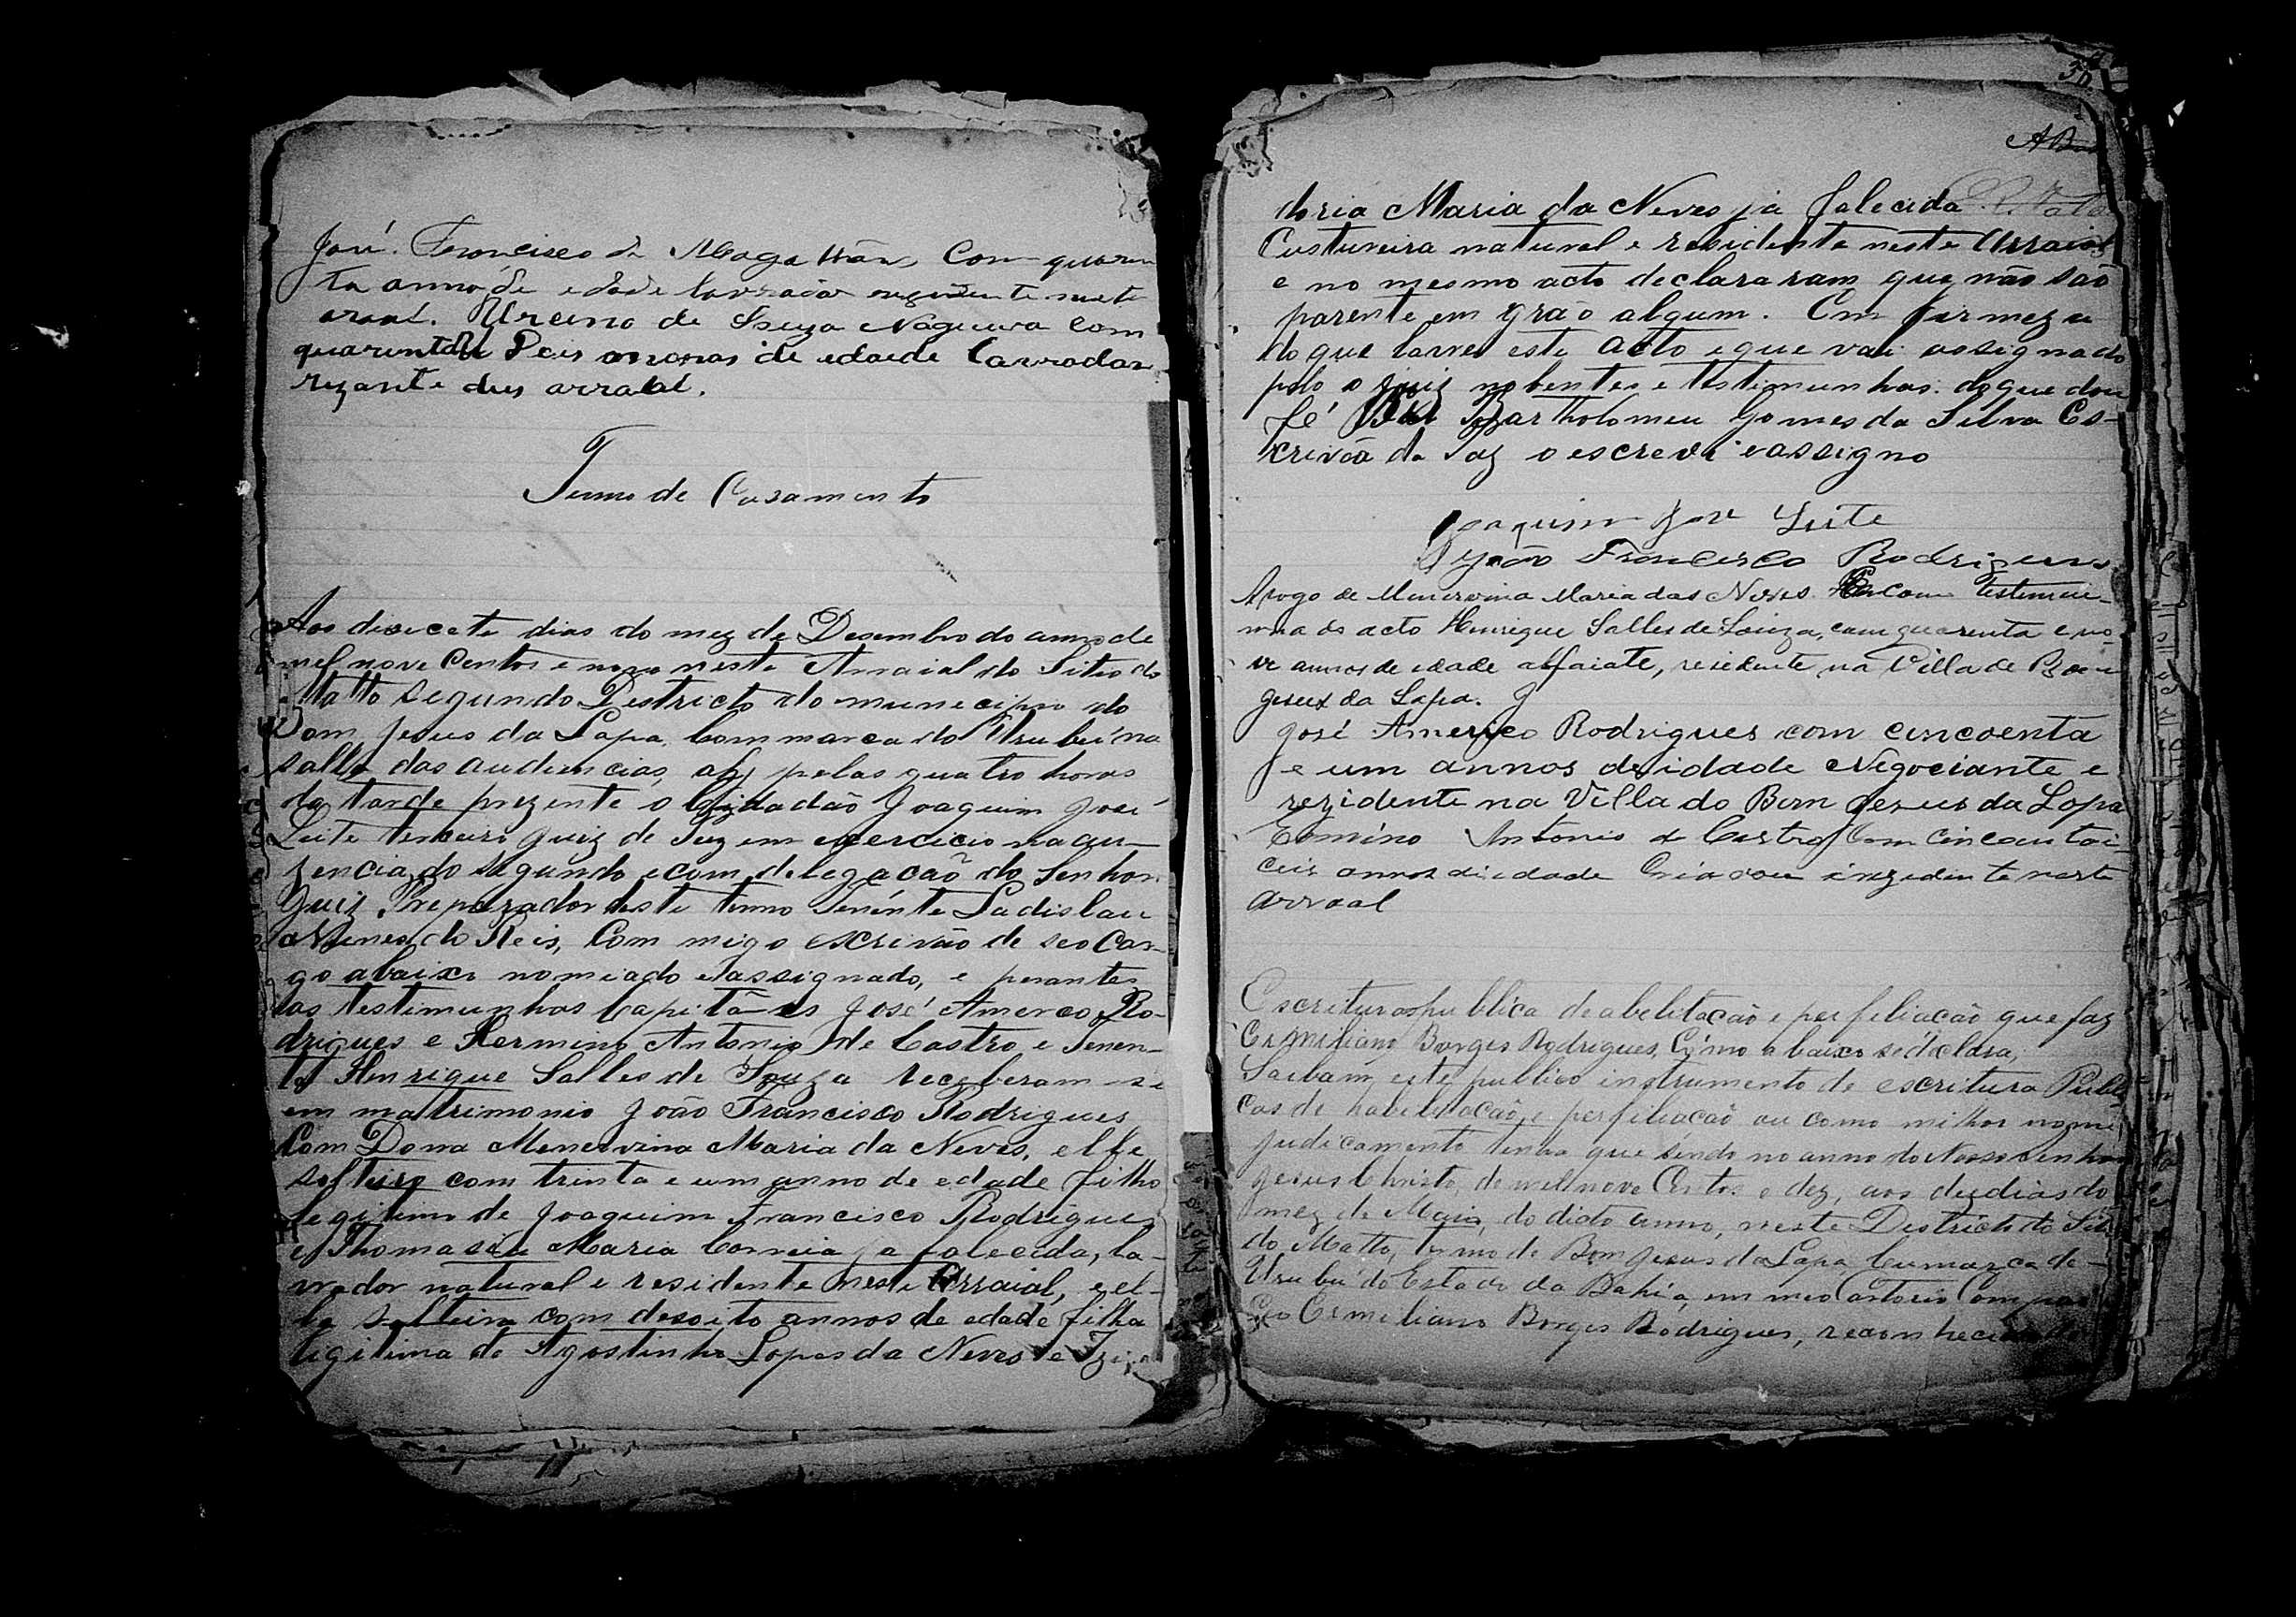 José Francisco de Magalhães Com quaren
ta anno de edade lavrador rezidente neste
araal. Urcino de Souza Nogueira Com
quarenta Deis annos de edade lavrador
rezante des arraial.
Termo de Casamento
Aos desecete dias do mez de Desembro do anno de
mel nove Centos e nove neste Arraial do Sitio do
Matto segundo Destricto do municipio do
Bom Jesus da Lapa, Commarca do Urubú na
salla das audiencias, ahi pelas quatro horas
da tarde prezente o Cidadão Joaquim José
Leite terceiro Juiz de Paz em exercicio na au-
zencia do segundo e com delegacão do Senhor
Juiz Preparador deste termo Tenénte Ladislau
do Reis, Com migo escrivão de seo Car-
go abaixo nomiado e assignado, e perantes
as testimunhas Capitães José Amerco Ro-
drigues e Hermino Antonio de Castro e Tenen-
te Henrique Salles de Souza receberam-se
em matrimonio João Francisco Rodrigues
Com Dona Menervina Maria da Neves, elle
solteiro com trinta e um anno de edade filho
legitimo de Joaquim Francisco Rodrigues
e Thomasia Maria Correia ja falecida, la-
vrador natural e residente neste Arraial, e el-
la solteira com desoito annos de edade filha
legitima de Agostinho Lopes da Neves e Izi
doria Maria da Neves já falecida
Custureira natural e residente neste Arraial
e no mesmo acto declararam que não são
parente em gráo algum. Em firmeza
do que lavrei este acto e que vai assignado
pelo o juiz nobentes e testimunhas. do que dou
fé Eu Bartholomeu Gomes da Silva Es-
crivão da Paz o escrevi e assigno
Joaquim José Leite
João Francisco Rodrigues
Arogo de Minervina Maria das Neves E com testemu-
nha do acto Henrique Salles de Souza, com quarenta e no-
ve annos de edade alfaiate, residente na Villa de Bom
Jesus da Lapa.
José Americo Rodrigues com cincoenta
e um annos de idade Negociante e
rezidente na Villa do Bom Jesus da Lapa
Ermino Antonio de Castro Com cincoenta i
ceis annos di edade Criador irezidente neste
arraal
Escritura publica de abelitacão e perfiliacão que faz
Ermiliano Borges Rodrigues, Cómo abaixo se déclara,
Saibam este publico instrumento de escritura Publi
cas de habilitacão e perfiliacão ou como milhor nome
judicamento tenha que sendo no anno do Nosso Senhor
Jesus Christo, de mil nove Centos e dez, aos dez dias do
mez de Maio, do dicto anno, neste Destricto do Sitio
do Matto, termo de Bom Jesus da Lapa Cumarca de
Urubú do Estado da Bahia, em meo Cartorio Compare
ceo Ermiliano Borges Rodrigues, reconhecido